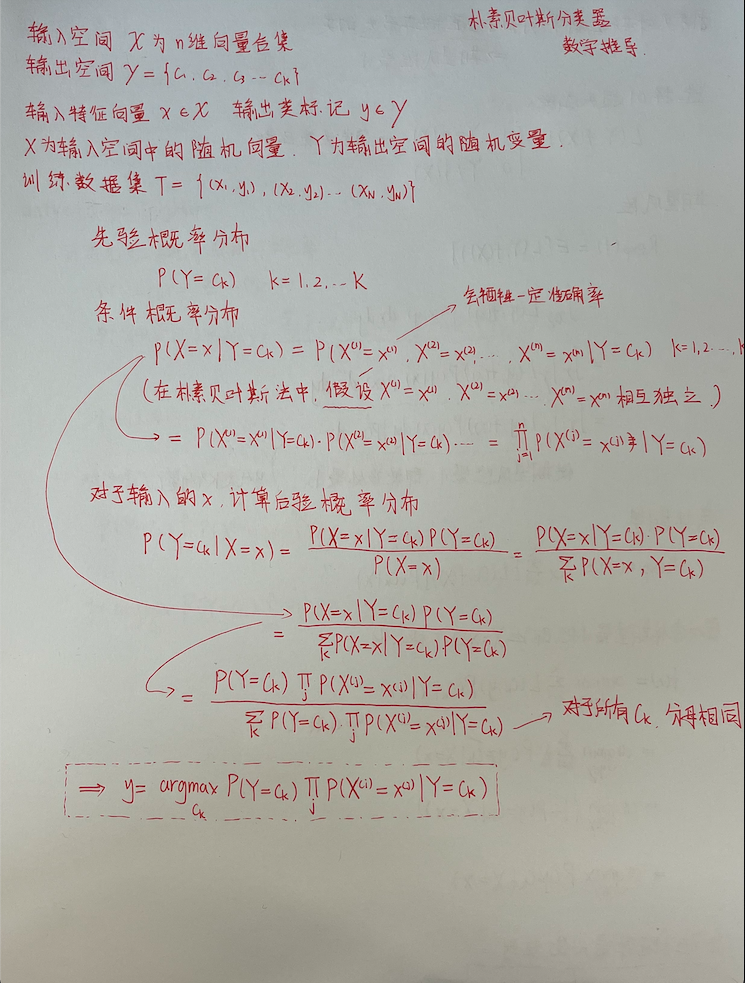 朴素贝叶斯分类器
数学推导.
输入空间 X 为 n维向量合集
输出空间 Y = {C₁. C₂. C₃ ... Cₖ}
输入特征向量 x ∈ X 输出类标记 y ∈ Y
X为输入空间中的随机向量. Y为输出空间的随机变量.
训练数据集 T = {(X₁,y₁), (X₂,y₂)... (X_N,y_N)}
先验概率分布
P(Y=Cₖ) k=1,2,...K
条件概率分布
会牺牲一定准确率
P(X=x|Y=Cₖ) = P(X⁽¹⁾=x⁽¹⁾, X⁽²⁾=x⁽²⁾..., X⁽ⁿ⁾=x⁽ⁿ⁾|Y=Cₖ) k=1,2...,k
(在朴素贝叶斯法中, 假设 X⁽¹⁾=x⁽¹⁾, X⁽²⁾=x⁽²⁾... X⁽ⁿ⁾=x⁽ⁿ⁾ 相互独立.)
= P(X⁽¹⁾=x⁽¹⁾|Y=Cₖ)·P(X⁽²⁾=x⁽²⁾|Y=Cₖ)... = ∏_{j=1}^{n} P(X⁽ʲ⁾=x⁽ʲ⁾|Y=Cₖ)
对于输入的 x, 计算后验概率分布
P(Y=Cₖ|X=x) = P(X=x|Y=Cₖ)P(Y=Cₖ) / P(X=x) = P(X=x|Y=Cₖ)·P(Y=Cₖ) / ∑_k P(X=x, Y=Cₖ)
= P(X=x|Y=Cₖ)P(Y=Cₖ) / ∑_k P(X=x|Y=Cₖ)P(Y=Cₖ)
= P(Y=Cₖ) ∏_j P(X⁽ʲ⁾=x⁽ʲ⁾|Y=Cₖ) / ∑_k P(Y=Cₖ)·∏_j P(X⁽ʲ⁾=x⁽ʲ⁾|Y=Cₖ)
对于所有 Cₖ, 分母相同
⟹ y= argmax_{Cₖ} P(Y=Cₖ) ∏_j P(X⁽ʲ⁾=x⁽ʲ⁾|Y=Cₖ)